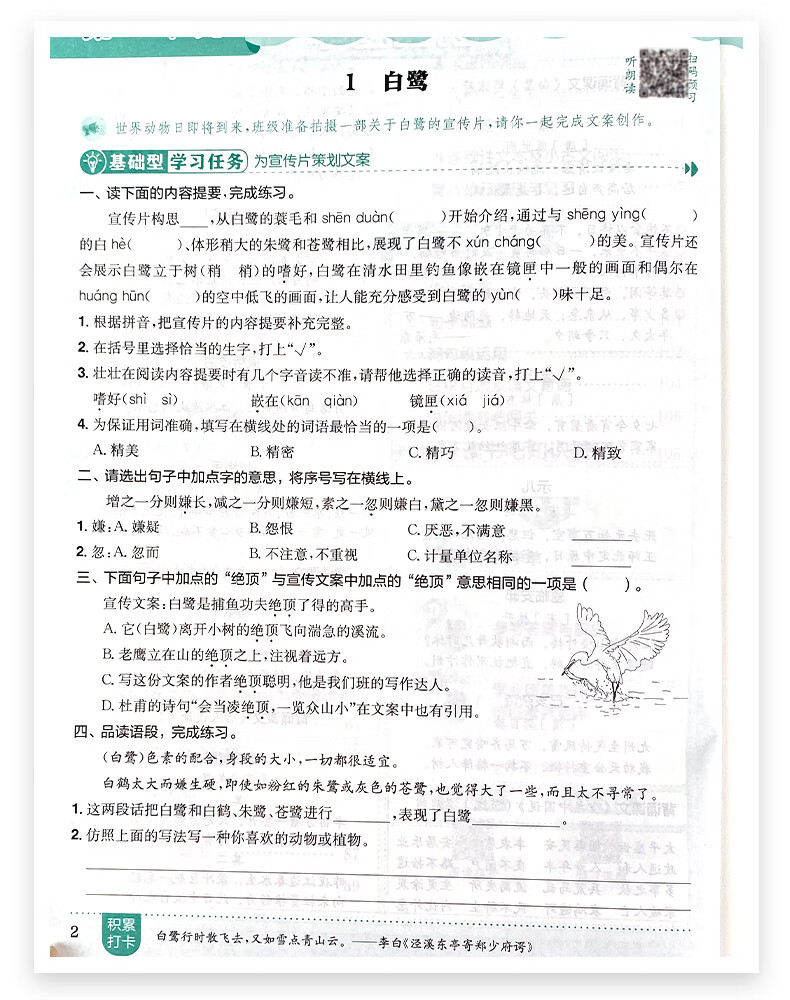 1 白鹭
听朗读
扫码预习
世界动物日即将到来,班级准备拍摄一部关于白鹭的宣传片,请你一起完成文案创作。
基础型 学习任务 为宣传片策划文案
一、读下面的内容提要,完成练习。
宣传片构思____,从白鹭的蓑毛和 shēn duàn( )开始介绍,通过与 shēng yìng( )
的白 hè( )、体形稍大的朱鹭和苍鹭相比,展现了白鹭不 xún cháng( )的美。宣传片还
会展示白鹭立于树(稍 梢)的嗜好,白鹭在清水田里钓鱼像嵌在镜匣中一般的画面和偶尔在
huáng hūn( )的空中低飞的画面,让人能充分感受到白鹭的 yùn( )味十足。
1. 根据拼音,把宣传片的内容提要补充完整。
2. 在括号里选择恰当的生字,打上“√”。
3. 壮壮在阅读内容提要时有几个字音读不准,请帮他选择正确的读音,打上“√”。
嗜好(shì sì) 嵌在(kān qiàn) 镜匣(xiá jiá)
4. 为保证用词准确,填写在横线处的词语最恰当的一项是( )。
A. 精美 B. 精密 C. 精巧 D. 精致
二、请选出句子中加点字的意思，将序号写在横线上。
增之一分则嫌长,减之一分则嫌短,素之一忽则嫌白,黛之一忽则嫌黑。
1. 嫌:A. 嫌疑 B. 怨恨 C. 厌恶,不满意 ______
2. 忽:A. 忽而 B. 不注意,不重视 C. 计量单位名称 ______
三、下面句子中加点的“绝顶”与宣传文案中加点的“绝顶”意思相同的一项是( )。
宣传文案:白鹭是捕鱼功夫绝顶了得的高手。
A. 它(白鹭)离开小树的绝顶飞向湍急的溪流。
B. 老鹰立在山的绝顶之上,注视着远方。
C. 写这份文案的作者绝顶聪明,他是我们班的写作达人。
D. 杜甫的诗句“会当凌绝顶,一览众山小”在文案中也有引用。
四、品读语段，完成练习。
(白鹭)色素的配合,身段的大小,一切都很适宜。
白鹤太大而嫌生硬,即使如粉红的朱鹭或灰色的苍鹭,也觉得大了一些,而且太不寻常了。
1. 这两段话把白鹭和白鹤、朱鹭、苍鹭进行________,表现了白鹭____________。
2. 仿照上面的写法写一种你喜欢的动物或植物。
2
积累打卡
白鹭行时散飞去,又如雪点青山云。——李白《泾溪东亭寄郑少府谔》